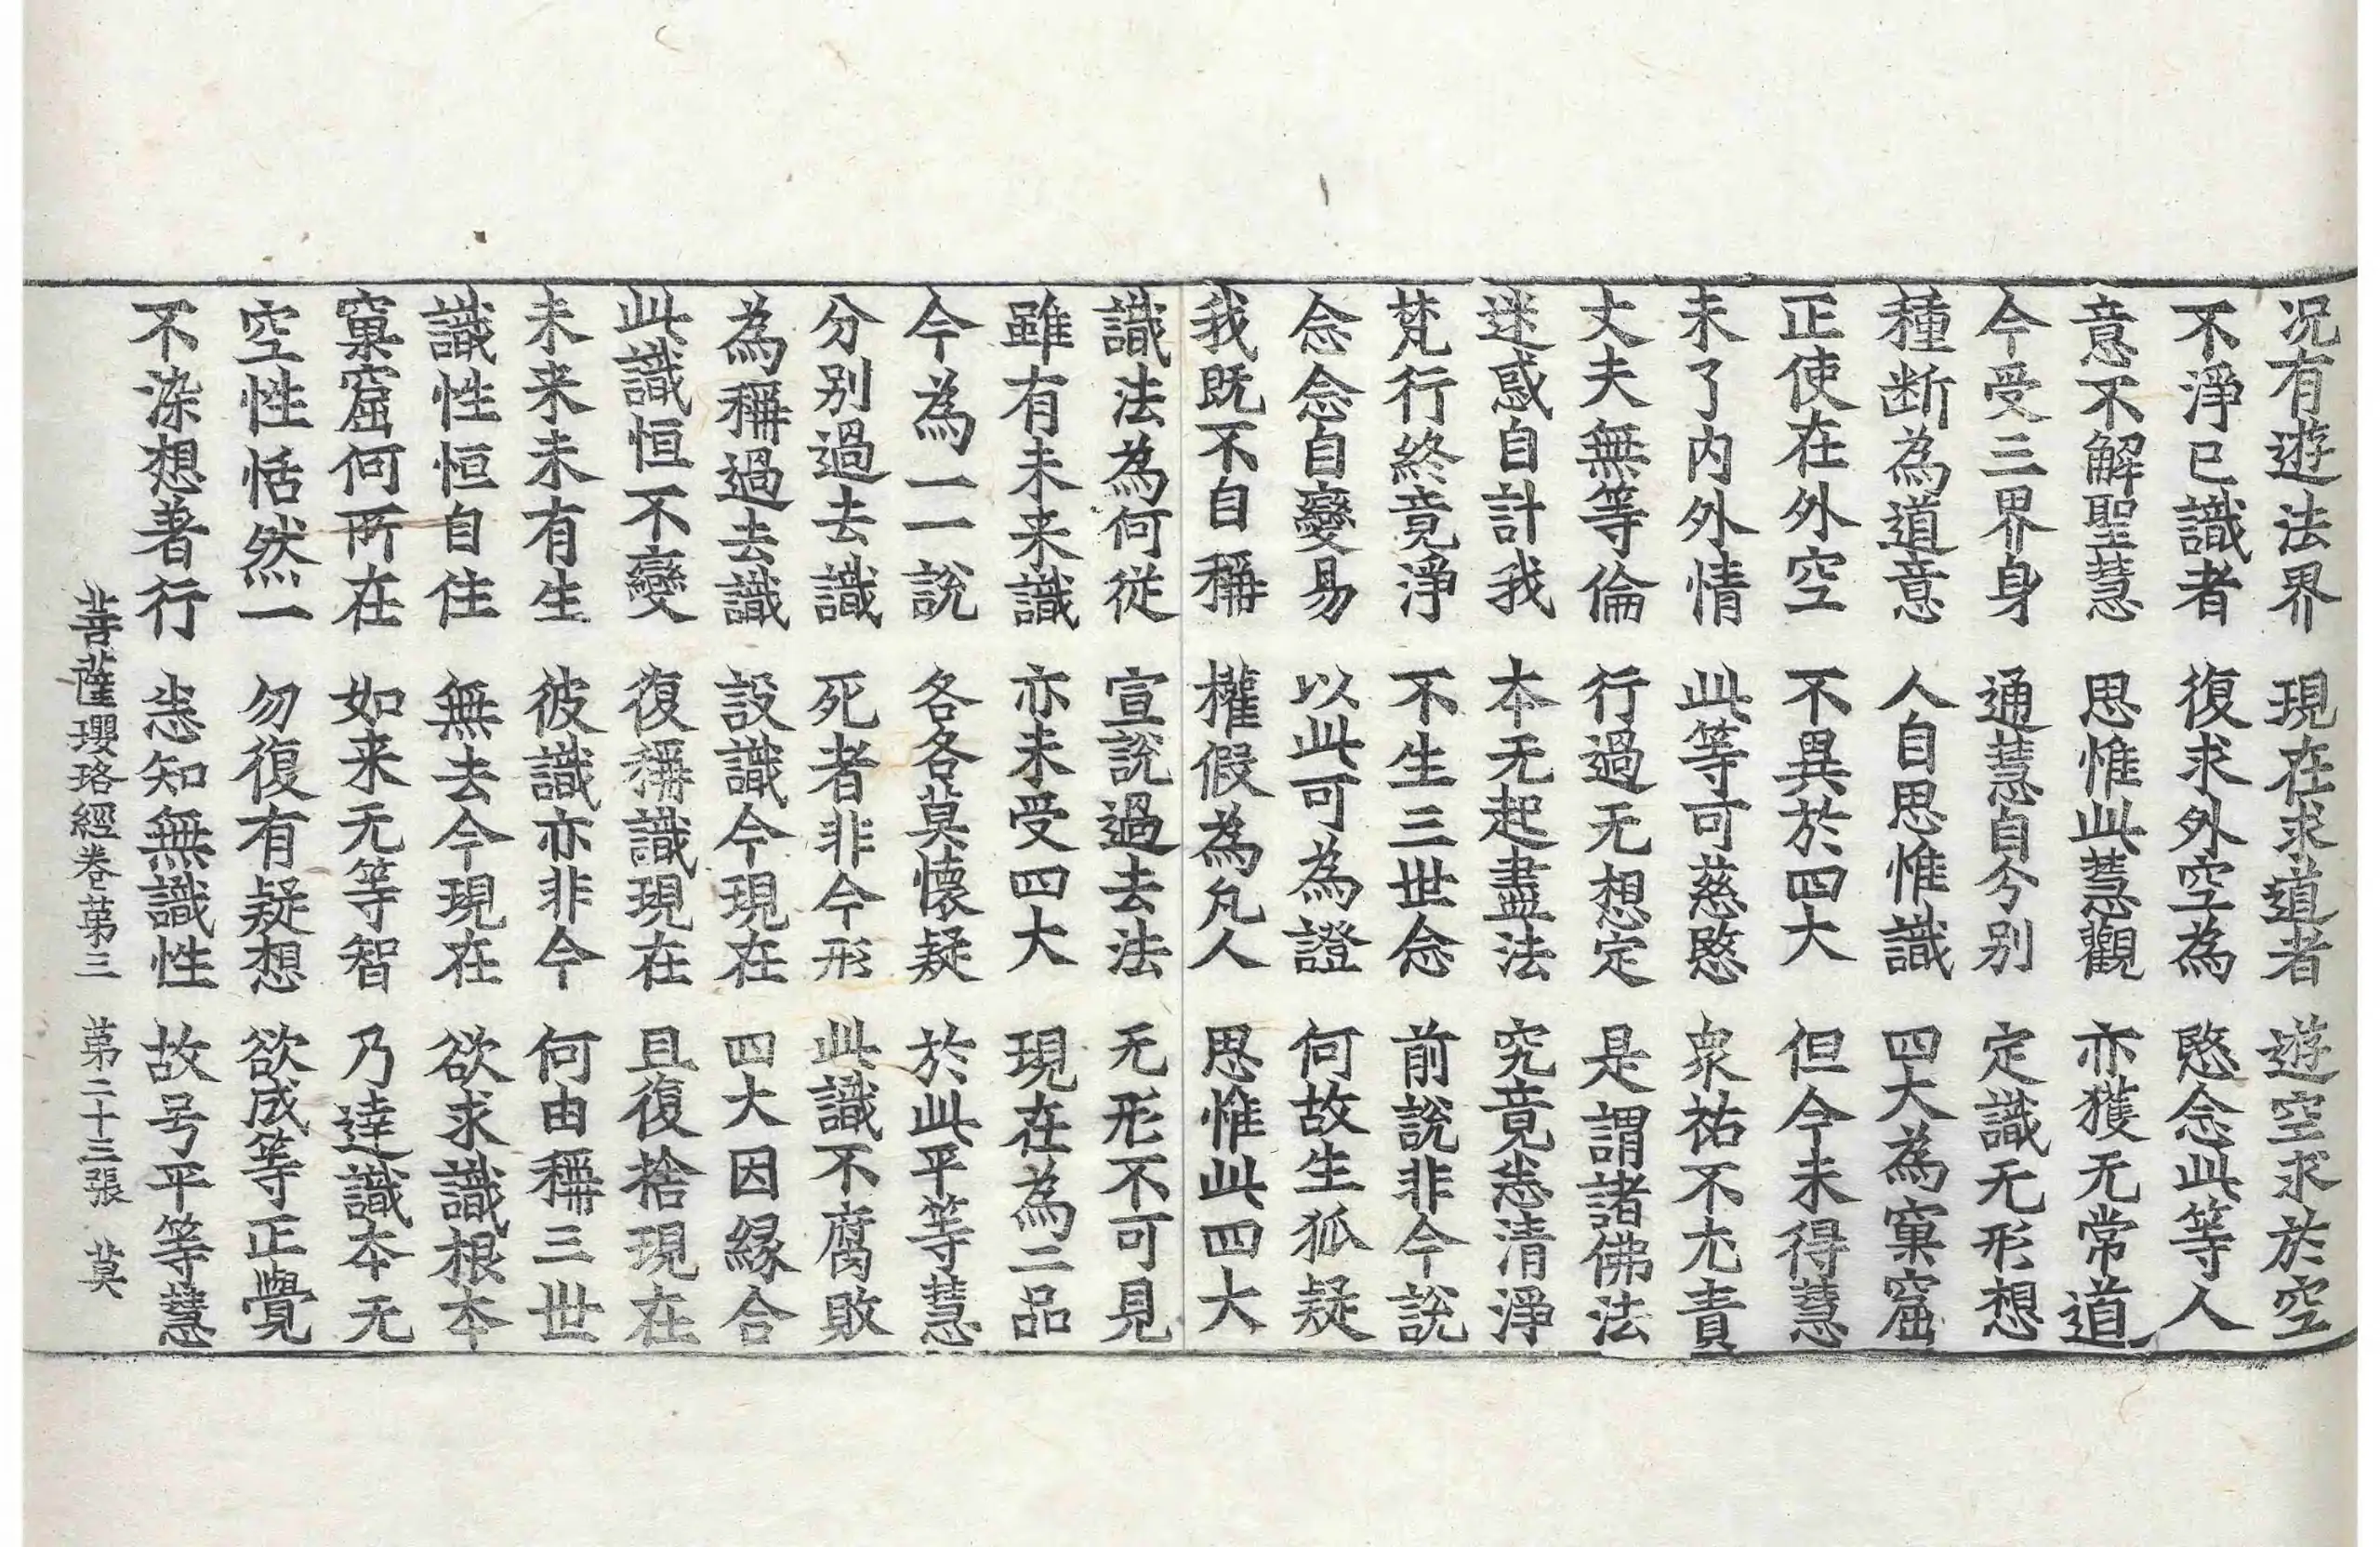 况有遊法界 現在求道者 遊空求於空
不淨已識者 復求外空為 愍念此等人
意不解聖慧 思惟此慧觀 亦獲无常道
今受三界身 通慧自分别 定識无形想
種断為道意 人自思惟識 四大為窠窟
正使在外空 不異於四大 但今未得慧
未了内外情 此等可慈愍 衆祐不尢責
丈夫無等倫 行過无想定 是謂諸佛法
迷惑自計我 本无起盡法 究竟悉清淨
梵行終竟淨 不生三世念 前說非今說
念念自變易 以此可為證 何故生狐疑
我既不自稱 權假為凡人 思惟此四大
識法為何從 宣說過去法 无形不可見
雖有未来識 亦未受四大 現在為二品
今為一一說 各各莫懷疑 於此平等慧
分别過去識 死者非今形 此識不腐敗
為稱過去識 設識今現在 四大因緣合
此識恒不變 復稱識現在 且復捨現在
未来未有生 彼識亦非今 何由稱三世
識性恒自住 無去今現在 欲求識根本
窠窟何所在 如来无等智 乃達識本无
空性恬然一 勿復有疑想 欲成等正覺
不染想著行 悉知無識性 故号平等慧
菩薩瓔珞經卷第三 第二十三張 莫